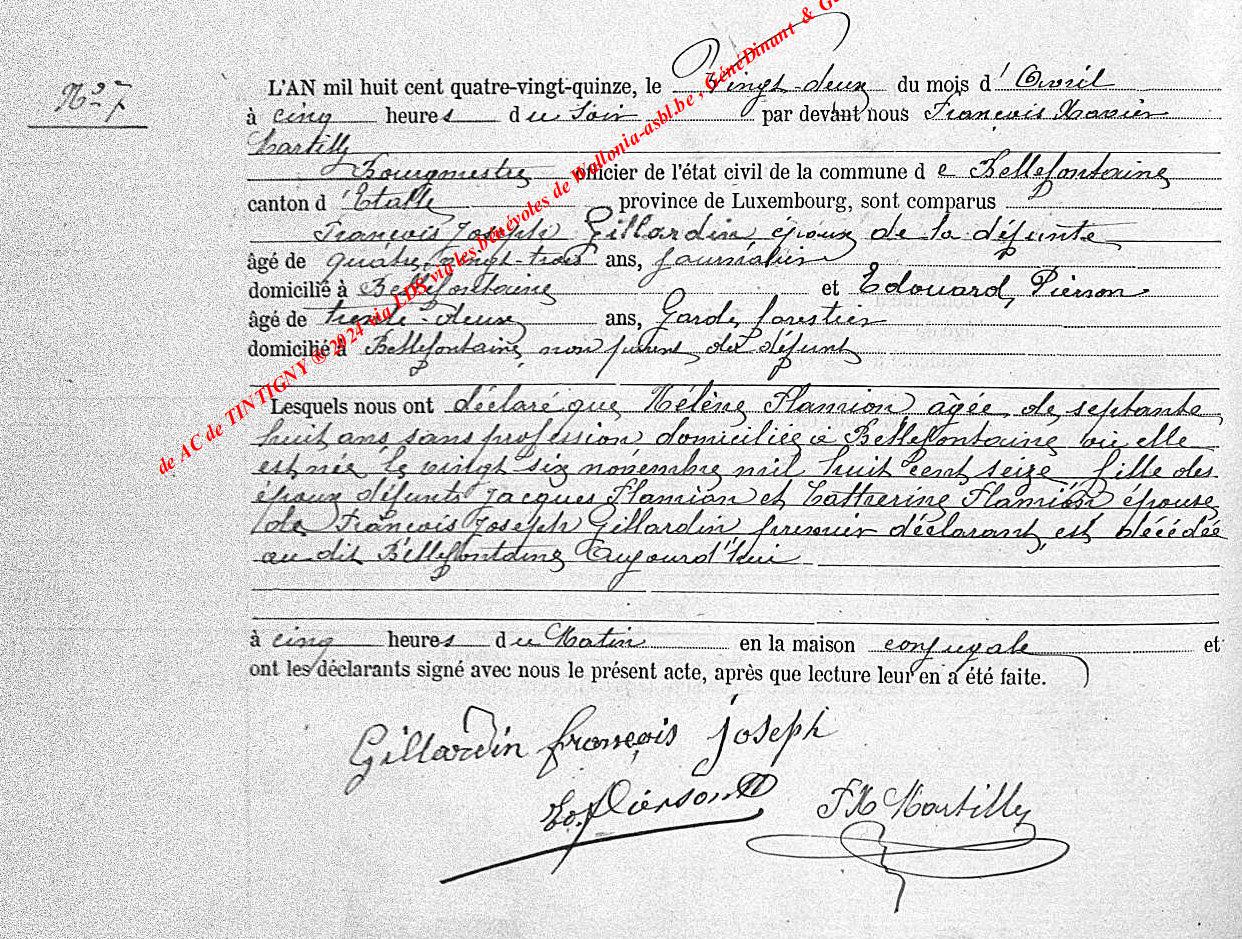 N° 7
L'AN mil huit cent quatre-vingt-quinze, le Vingt-deux du mois d'Avril
à cinq heures du Soir par devant nous François Xavier
Martilly
Bourgmestre officier de l'état civil de la commune de Bellefontaine
canton d'Etalle province de Luxembourg, sont comparus
François Joseph Gillardin époux de la défunte
âgé de quatre-vingt-trois ans, journalier
domicilié à Bellefontaine et Edouard Pierson
âgé de trente-deux ans, Garde forestier
domicilié à Bellefontaine non parent du défunt
Lesquels nous ont déclaré que Hélène Flamion âgée de septante
huit ans sans profession domiciliée à Bellefontaine où elle
est née le vingt six novembre mil huit cent seize fille des
époux défunts Jacques Flamion et Catherine Flamion épouse
de François Joseph Gillardin premier déclarant, est décédée
au dit Bellefontaine aujourd'hui
à cinq heures du Matin en la maison conjugale et
ont les déclarants signé avec nous le présent acte, après que lecture leur en a été faite.
Gillardin françois joseph
Ed. Pierson FX Martilly
de AC de TINTIGNY ® 2024 via LDS via les bénévoles de Wallonia-asbl.be , GénéDinant &